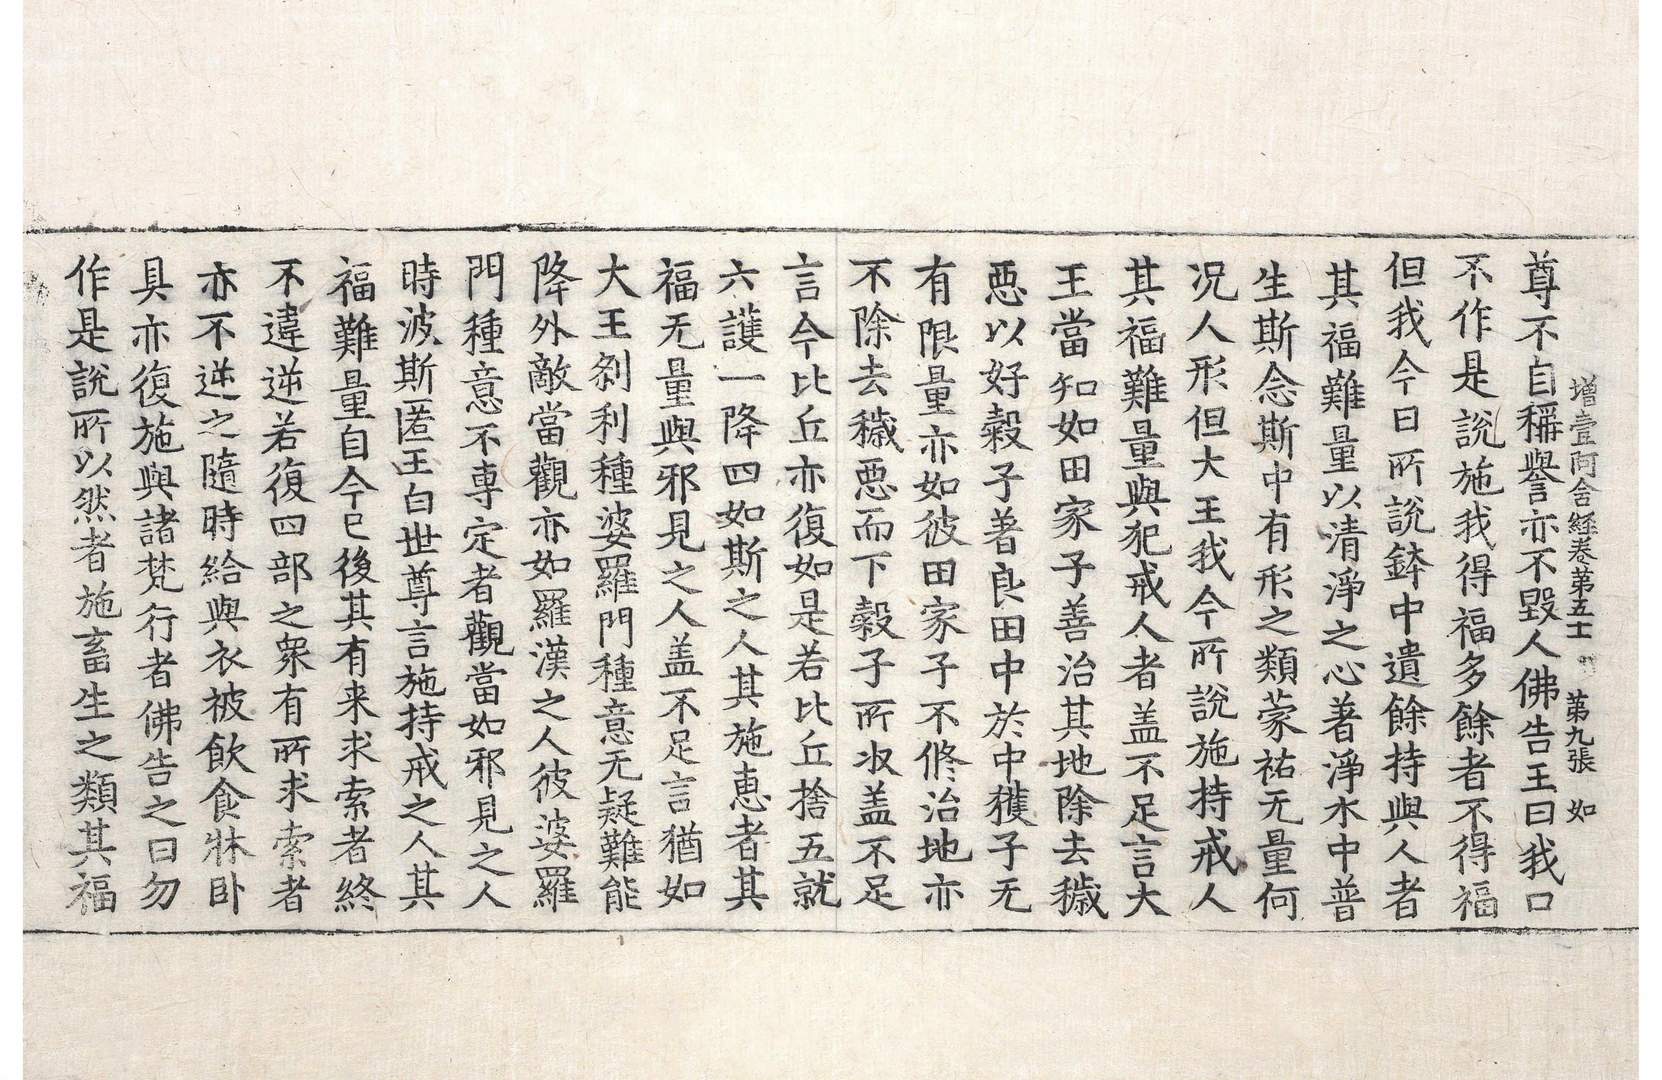 增壹阿含經卷第五十一 第九張 如
尊不自稱譽亦不毀人佛告王曰我口
不作是說施我得福多餘者不得福
但我今日所說鉢中遺餘持與人者
其福難量以清淨之心著淨水中普
生斯念斯中有形之類蒙祐无量何
况人形但大王我今所說施持戒人
其福難量與犯戒人者盖不足言大
王當知如田家子善治其地除去穢
惡以好穀子著良田中於中獲子无
有限量亦如彼田家子不修治地亦
不除去穢惡而下穀子所收盖不足
言今比丘亦復如是若比丘捨五就
六護一降四如斯之人其施惠者其
福无量與邪見之人盖不足言猶如
大王剎利種婆羅門種意无疑難能
降外敵當觀亦如羅漢之人彼婆羅
門種意不專定者觀當如邪見之人
時波斯匿王白世尊言施持戒之人其
福難量自今已後其有来求索者終
不違逆若復四部之衆有所求索者
亦不逆之隨時給與衣被飲食牀卧
具亦復施與諸梵行者佛告之曰勿
作是說所以然者施畜生之類其福